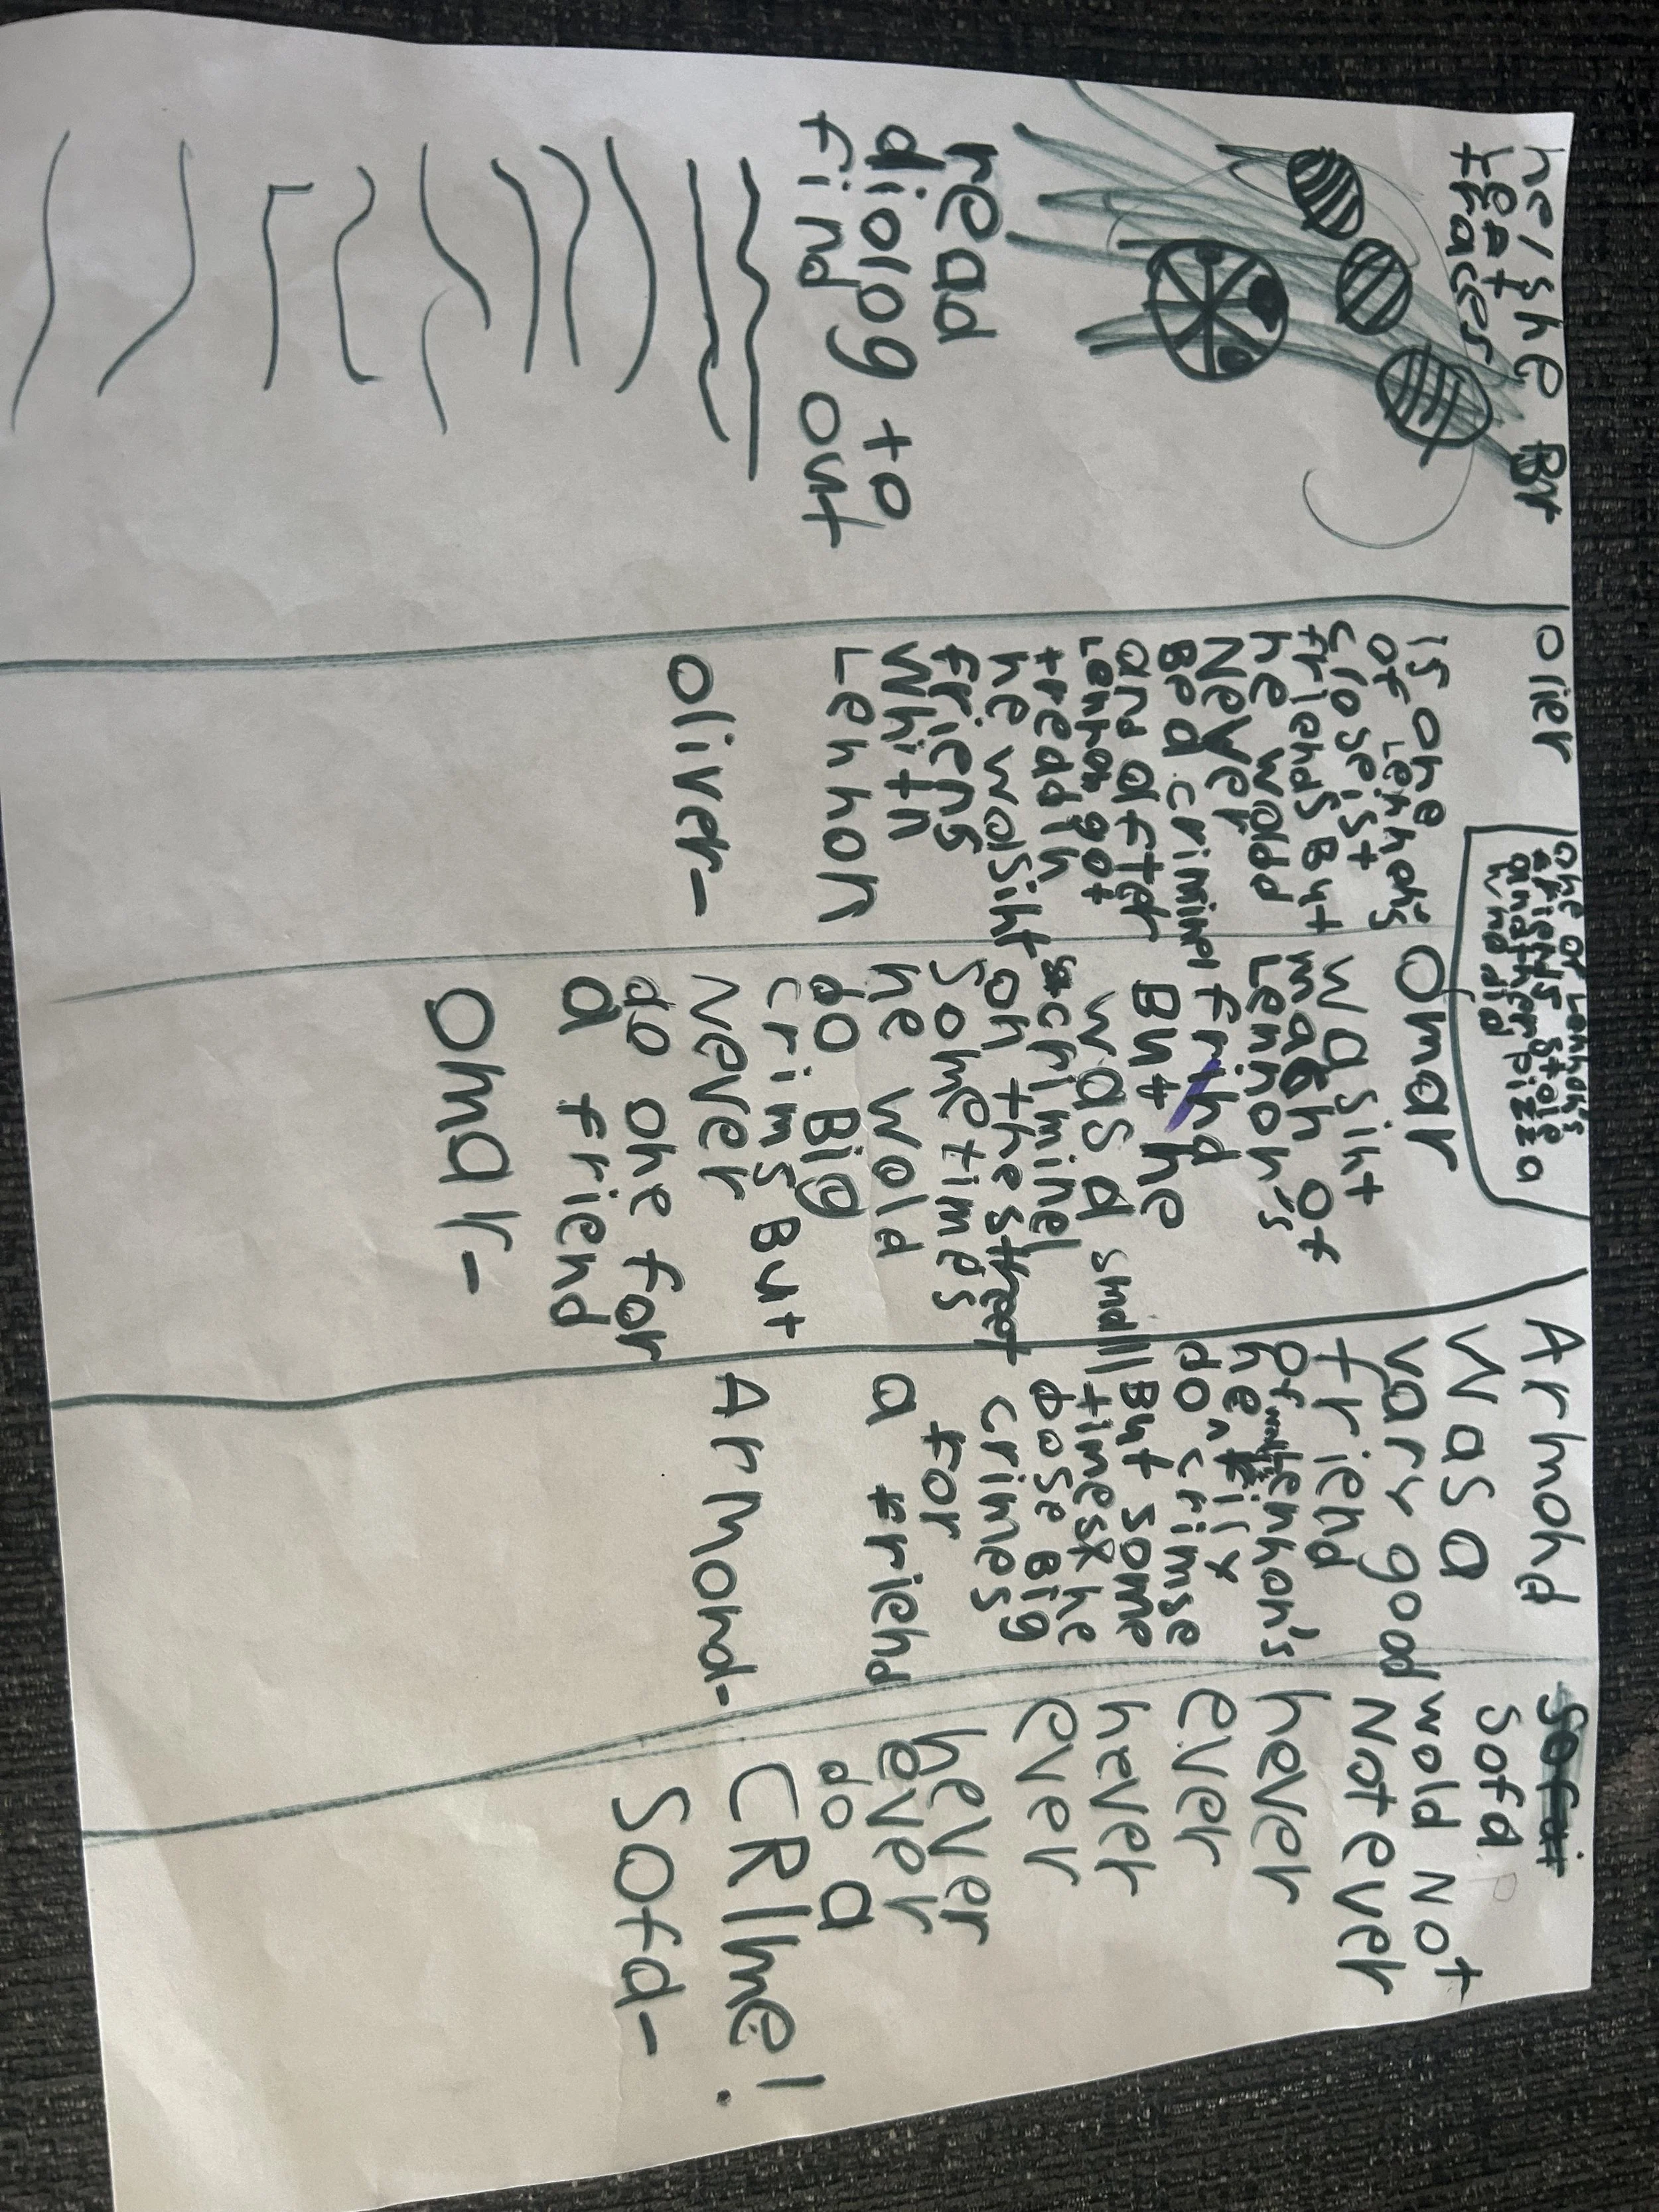 he/she But
left
tracer
read
diolog to
find out
Olier
is one
of Lenhon's
closeist
friends But
he wodd
Never
Be a criminel
and after
Lenhon got
treadin
he wasint
friens
Whith
Lenhon
Oliver-
One of Lenhon's
friends stole
anather pizza
hinddid
Omar
wasint
mach of
Lenhon's
frihd
But he
was a small
criminel
on the street
Sometimes
he wold
do Big
crims But
Never
do one for
a friend
Omar-
Armond
Was a
vary good
friend
of Lenhon's
he
do crimse
But some
times he
dose Big
crimes
for
a friend
Armond-
Sofa
wold Not
Not ever
never
ever
never
ever
never
ever
do a
CRIme!
Sofa-